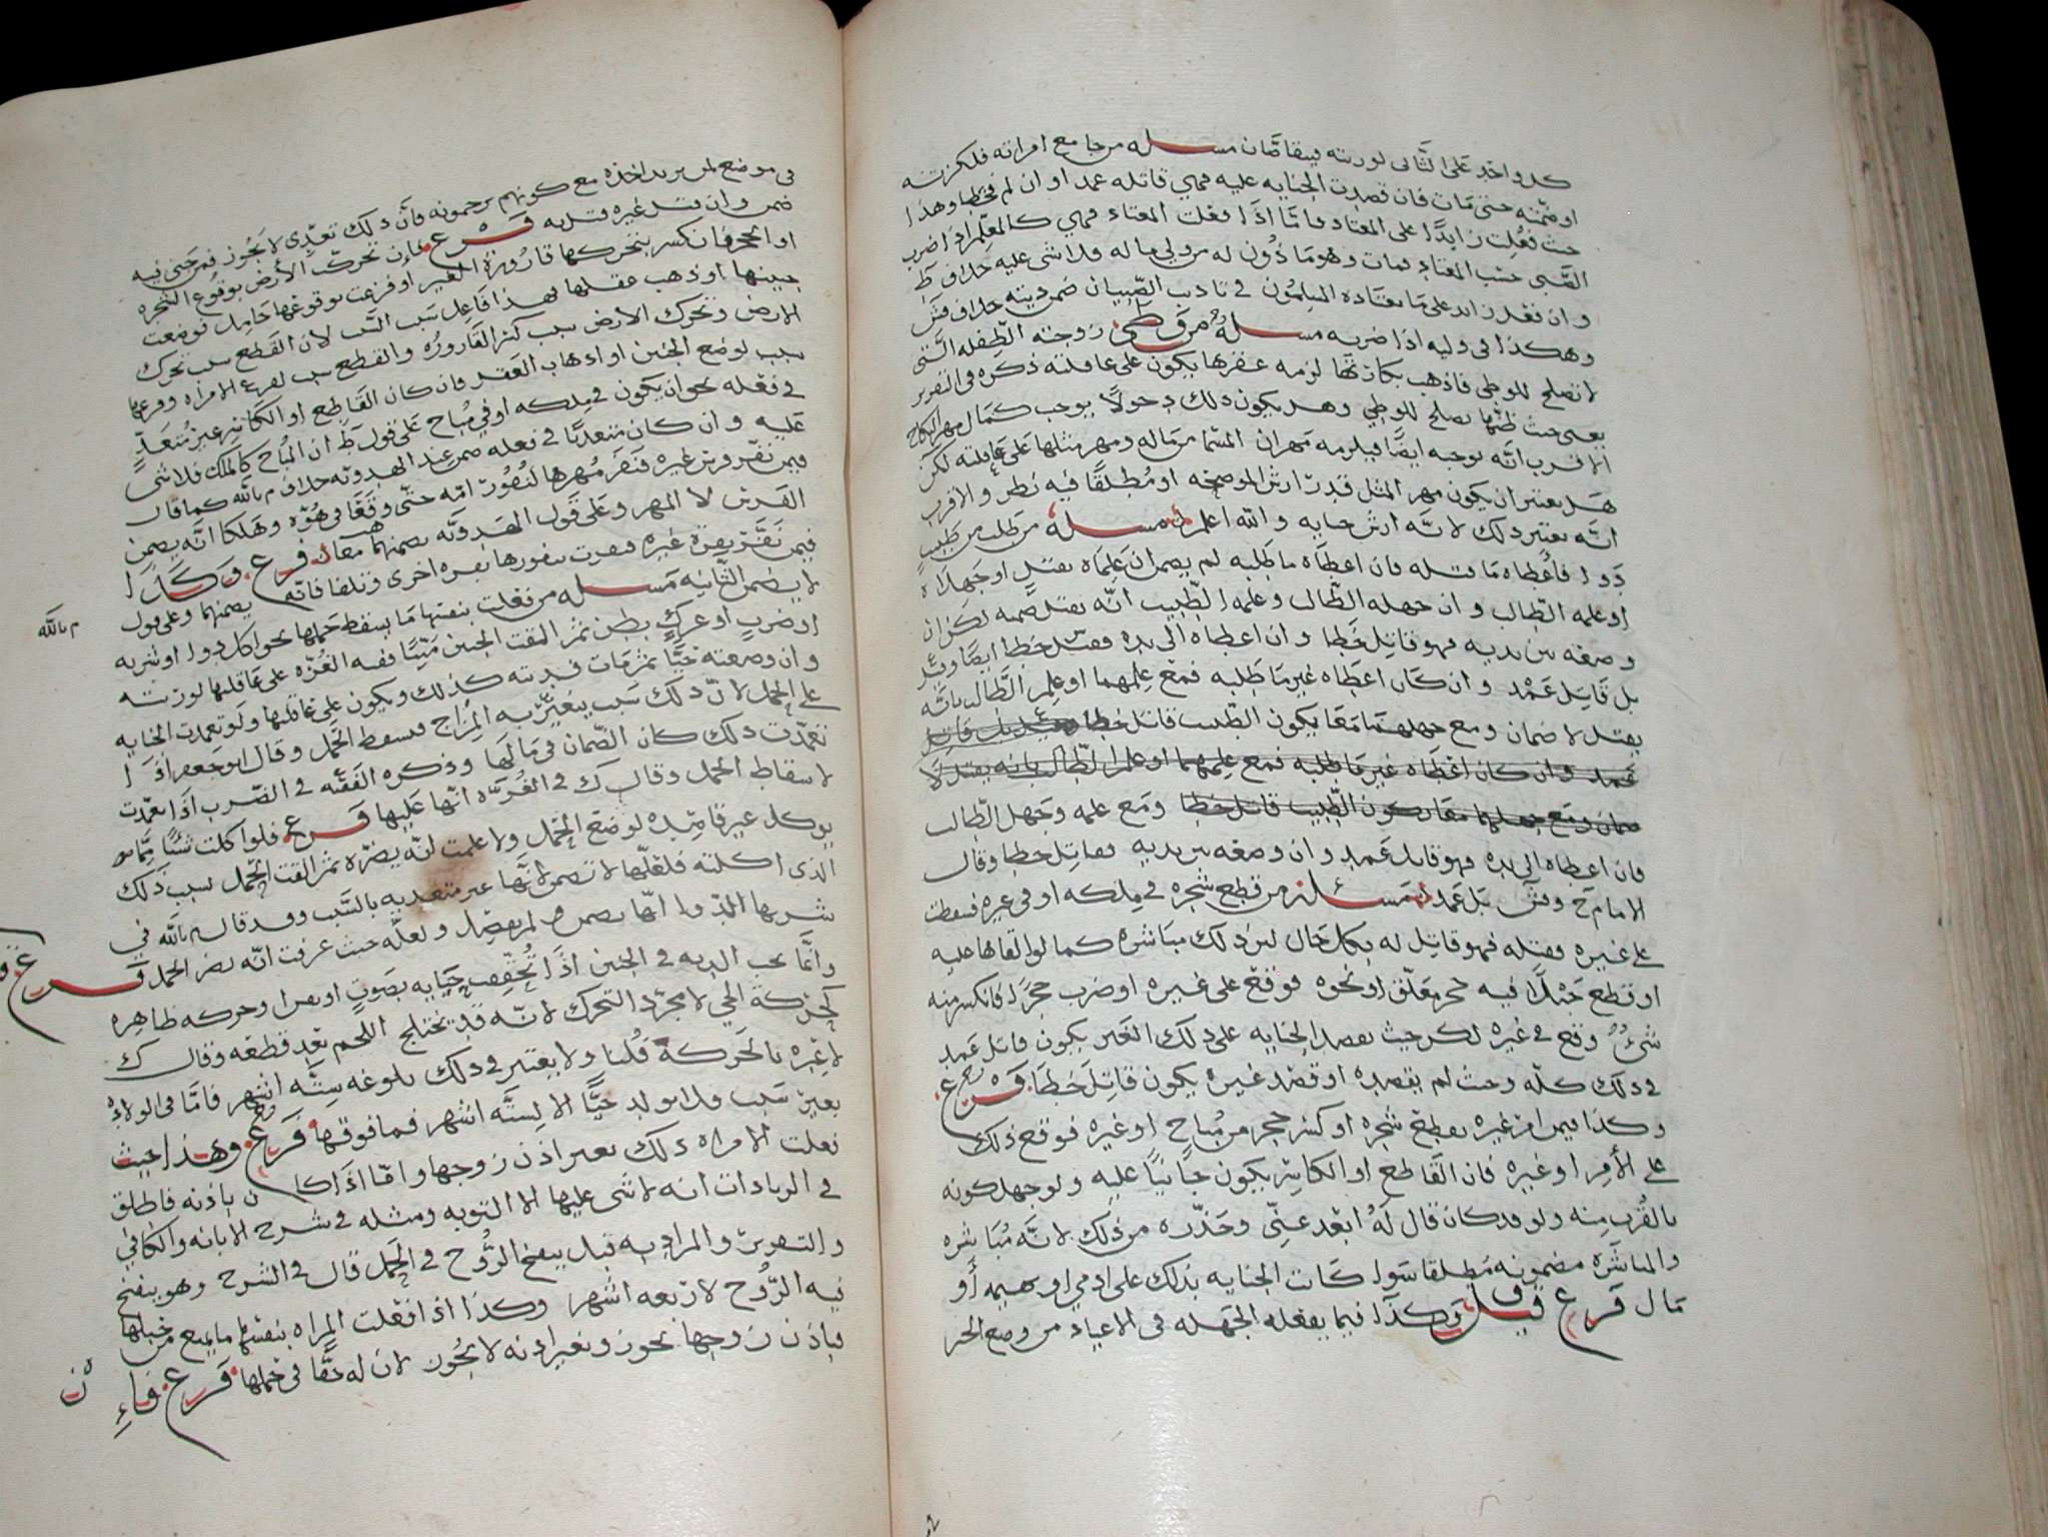 كل واحد على الثاني لورثته فيتقاصّان مسله من جامع امراته فلكزته
او ضمّته حتى مات فان قصدت الجنايه عليه فهي قاتله عمد اوان لم فخطا وهذا
حيث فعلت زايدًا على المعتاد فامّا اذا فعلت المعتاد فهي كالمعلّم اذا ضرب
الصّبي حسب المعتاد فمات وهو ماذون له من وليه ماله فلاشي عليه خلاف ط
وان فعل زايد على ما يعتاده المسلمون في تاديب الصّبيان ضمن ديته خلاف قش
وهكذا في وليه اذا ضربه مسله من وطي زوجته الطّفله الّتي
لا تصلح للوطي فاذهب بكارتها لزمه عقرها يكون على عاقلته ذكره في التقرير
يعني حيث ظنّها تصلح للوطي وهل يكون ذلك دخولًا يوجب كمال مهر النكاح
الاقرب انّه يوجبه ايضًا فيلزمه مهران المسمّا من ماله ومهر مثلها على عاقلته لكن
هل يعتبر ان يكون مهر المثل قدر ارش الموضحه او مُطلقًا فيه نظر والاقرب
انّه يعتبر ذلك لانّه ارش جنايه والله اعلم مسله من طلب من طبيب
دوا فاعطاه ما قتله فان اعطاه ما طلبه لم يضمن ان علماه يقتل او جهلاه
او علمه الطّالب وان جهله الطّالب وعلمه الطّبيب انّه يقتل ضمنه لكن ان
وضعه بين يديه فهو قاتل خطا وان اعطاه الى يده فقش خطا ايضا وقيل
بل قاتل عَمْد وان كان اعطاه غير ما طلبه فمع علمهما او علم الطّالب بانّه
يقتل لا ضمان ومع جهلهما معًا يكون الطّبيب قاتل خطا وقيل بل قاتل
عمد وان كان اعطاه غير ما طلبه فمع علمهما او علم الطالب بانه يقتل لا
ضمان ومع جهلهما معا يكون الطّبيب قاتل خطا ومع علمه وجهل الطّالب
فان اعطاه الى يده فهو قاتل عَمد وان وضعه بين يديه فقاتل خطا وقال
الامام ح وقش بَل عَمد مسله من قطع شجره في ملكه او في غيره فسقطت
على غيره فقتله فهو قاتل له بكل حال لان ذلك مباشره كما لو القاها عليه
او قطع حَبْلًا فيه حجر معلّق او نحوه فوقع على غيره او ضرب حجرًا فانكسر منه
شيءٌ وقع في غيره لكن حيث يقصد الجنايه على ذلك الغير يكون قاتل عَمد
في ذلك كله وحيث لم يقصده او قصد غيره يكون قاتل خطا فرع
وكذا فيمن امر غيره بقطع شجره او كسر حجر من مُباح او غيره فوقع ذلك
على الأمر او غيره فان القاطع او الكاسر يكون جانيًا عليه ولو جهل كونه
بالقُرب منه ولو قد كان قال لَهُ ابْعد عنّي وحَذّره من ذلك لانّه مُبَاشره
والمباشره مضمونه مُطلقا سوا كانت الجنايه بذلك على ادمي او بهيمه أو
مال فرع قيل وكذا فيما يفعله الجهله في الاعياد من وضع الحر
في موضع لمن يريد اخذه مع كونهم يرجمونه فانّ ذلك تعدّي لا يَجوز فمن جنى فيه
ضمن وان قتل غيره قتل به فرع فان تحرّك الأرض بوقوع الشجره
او الحجر فانكسر بتحركها قارورة الغير او فزعت بوقوعها حامل فوضعت
جنينها او ذهب عقلها فهذا فاعل سَبب السّبب لان القطع سبب تحرك
الارض وتحرك الارض سبب كسر القاروره والقطع سبب لفزع الامراه وفزعها
سبب لوضع الجنين او اذهاب العَقل فان كان القاطع او الكاسر غير مُتعَدٍّ
في فعله نحو ان يكون في مِلكه او في مُباح على قول ط ان المُباح كالملك فلا شي
عَليه وان كان متعديًا في فعله ضمن عند الهدويّه خلاف م بالله كما قال
فيمن نفّر فرس غيره فنَفر مُهرها لنُفُور امّه حتّى وقعَا في هُوّه وهَلكا انّه يضمن
الفرس لا المهر وعلى قَول الهَدويّه يضمنهما معًا فرع وكذا
فيمن نفّر بقرة غيره فنفرت بنفورها بقره اخرى وتلفا فانّه يضمنهما وعلى قول
م بالله
لا يضمن الثّانيه مسله من فعلت بنفسها ما يسقط حَملها نحو اكل دوا او شربه
او ضربٍ او عركٍ بطن ثمّ القت الجنين مَيّتًا ففيه الغُرّه على عاقلتها لورثته
وان وضعته حيًّا ثمّ مات فديته كذلك ويكون على عاقلتها ولو تعمدت الجنايه
على الحمل لانّ ذلك سَبب يتغيّر به المزاج فيسقط الحَمل وقال ابو جعفر اذا
تعمّدت ذلك كان الضّمان في مَالها وذكره الفقيه في الضّرب اذا تعمّدت
لاسقاط الحمل وقال ك في الغُرَّه انّها عَليها فرع فلو اكلت شيئًا ممّا
يوكل غير قاصِده لوضع الحَمل ولا علمت انّه يضرّه ثمّ القت الحَمل بسبب ذلك
الذي اكلته فلعلّها لا تضمن لانّها غير متعديه بالسّبب وقد قال م بالله في
شربها الدّوا انّها تضمن ولم يفصّل ولعلّه حيث عرفت انّه يضر الحمل فرع
وانَّما تجب الديه في الجنين اذا تُحُقّقت حَياته بصَوتٍ او نفَس او حركه ظاهره
كحركة الحي لا مجرّد التحرك لانّه قد يختلج اللحم بَعد قطعه وقال ك
لا عِبْره بالحَركه قُلنا ولا يعتبر في ذلك بلوغه ستّه اشهر فامّا في الولاده
بغير سَبب فلا يولد حَيًّا الا لستّه اشهر فما فوقها فرع وهذا حيث
فعلت الامراه ذلك بغير اذن زوجها وامّا اذا كان باذنه فاطلق
في الزيادات انه لا شي عليها الا التوبه ومثله في شرح الابانه والكافي
والتقرير والمراد به قبل ينفخ الرُّوح في الحَمل قال في الشرح وهو ينفخ
فيه الرُّوح لاربعه اشهر وكذا اذا فعلت المراه بنفسها ما يمنع من حَبلها
فباذن زوجها يجوز وبغير اذنه لا يَجُوز لان له حَقًّا في حَملها فرع فا